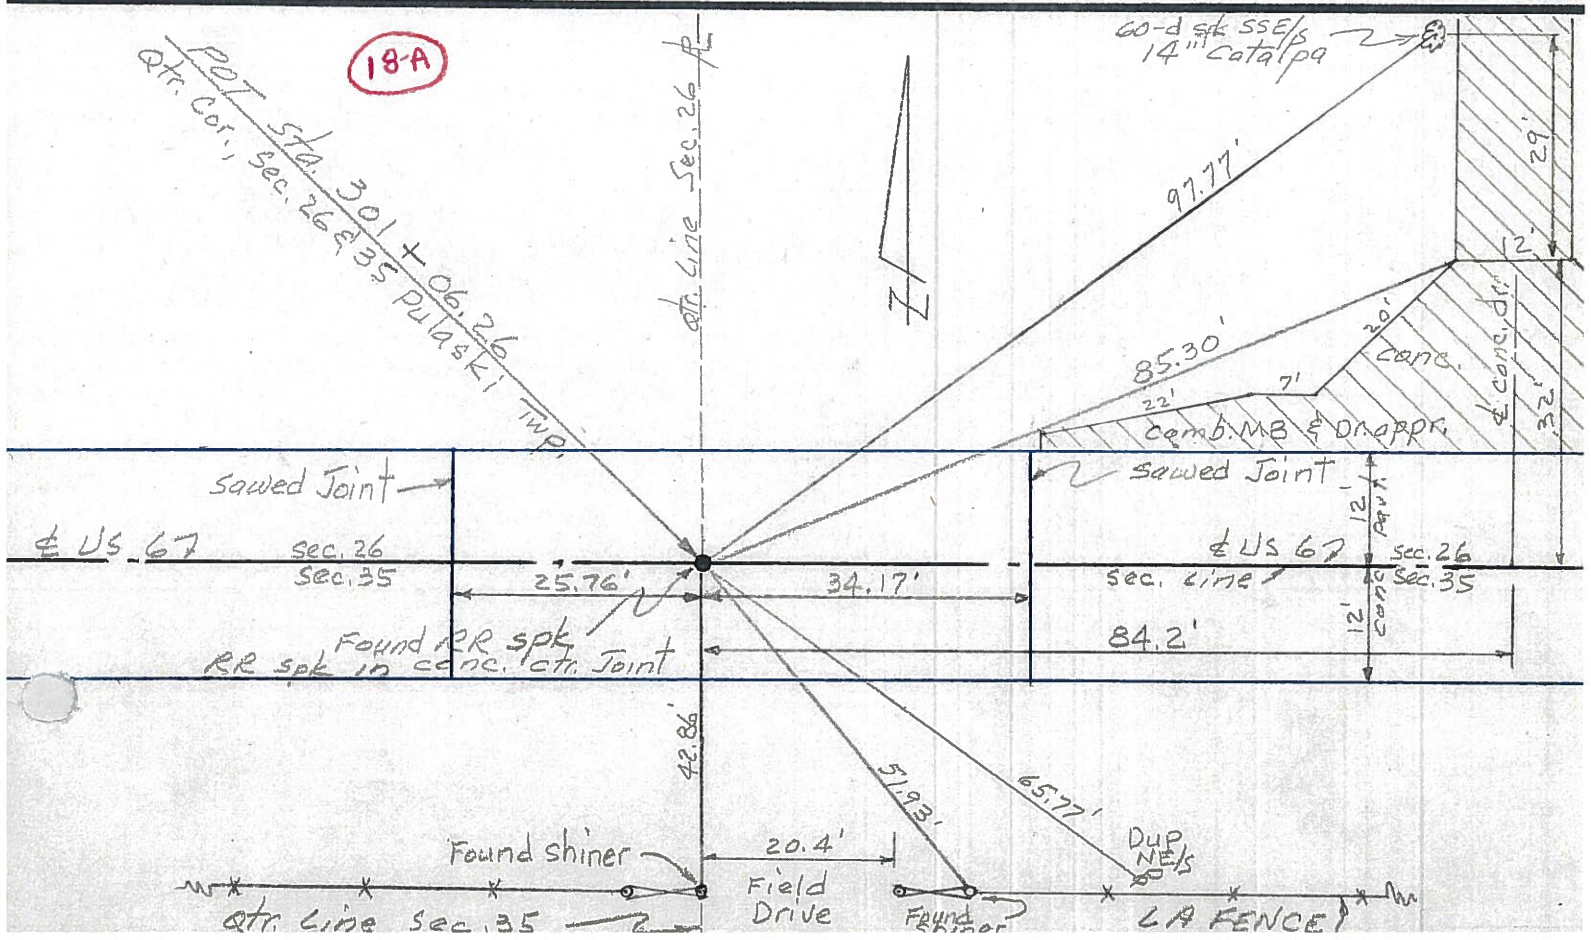 18-A
POT Sta. 301 + 06.26
Qtr. Cor., Sec. 26 & 35 Pulaski Twp.
Qtr. Line Sec. 26
60-d spk SSE/s
14" Catalpa
97.77'
29'
12'
85.30'
20'
7'
22'
conc.
℄ conc. dr.
32'
comb. MB & Dr. appr.
Sawed Joint
Sawed Joint
12'
pavt.
℄ US 67
sec. 26
sec. 35
℄ US 67
sec. Line
sec. 26
Sec. 35
25.76'
34.17'
12'
conc
84.2'
Found RR spk
RR spk in conc. ctr. Joint
42.86'
51.93'
65.77'
Found Shiner
20.4'
Dup
NE/s
Field
Drive
Found
Shiner
LA FENCE
Qtr. Line Sec. 35